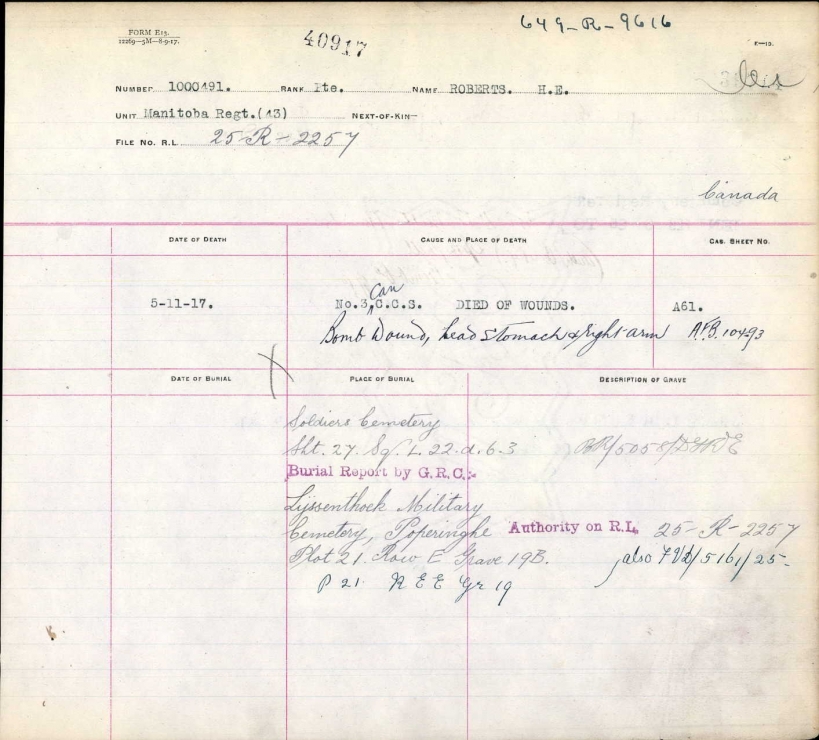 FORM E13.
12269—5M—8-9-17.
40917
649-R-9616
E—13.
NUMBER 1000491. RANK Pte. NAME ROBERTS. H.E.
UNIT Manitoba Regt.(43) NEXT-OF-KIN—
FILE NO. R.L. 25-R-2257
Canada
DATE OF DEATH CAUSE AND PLACE OF DEATH CAS. SHEET NO.
5-11-17. No.3, Can C.C.S. DIED OF WOUNDS. A61.
Bomb Wound, head stomach & right arm
DATE OF BURIAL PLACE OF BURIAL DESCRIPTION OF GRAVE
Soldiers Cemetery
Sht. 27. Sq. L. 22.d.6.3
Burial Report by G.R.C:-
Lijssenthock Military
Cemetery, Poperinghe Authority on R.L. 25-R-2257
Plot 21. Row E Grave 19B. also
P 21. R E E Gr 19